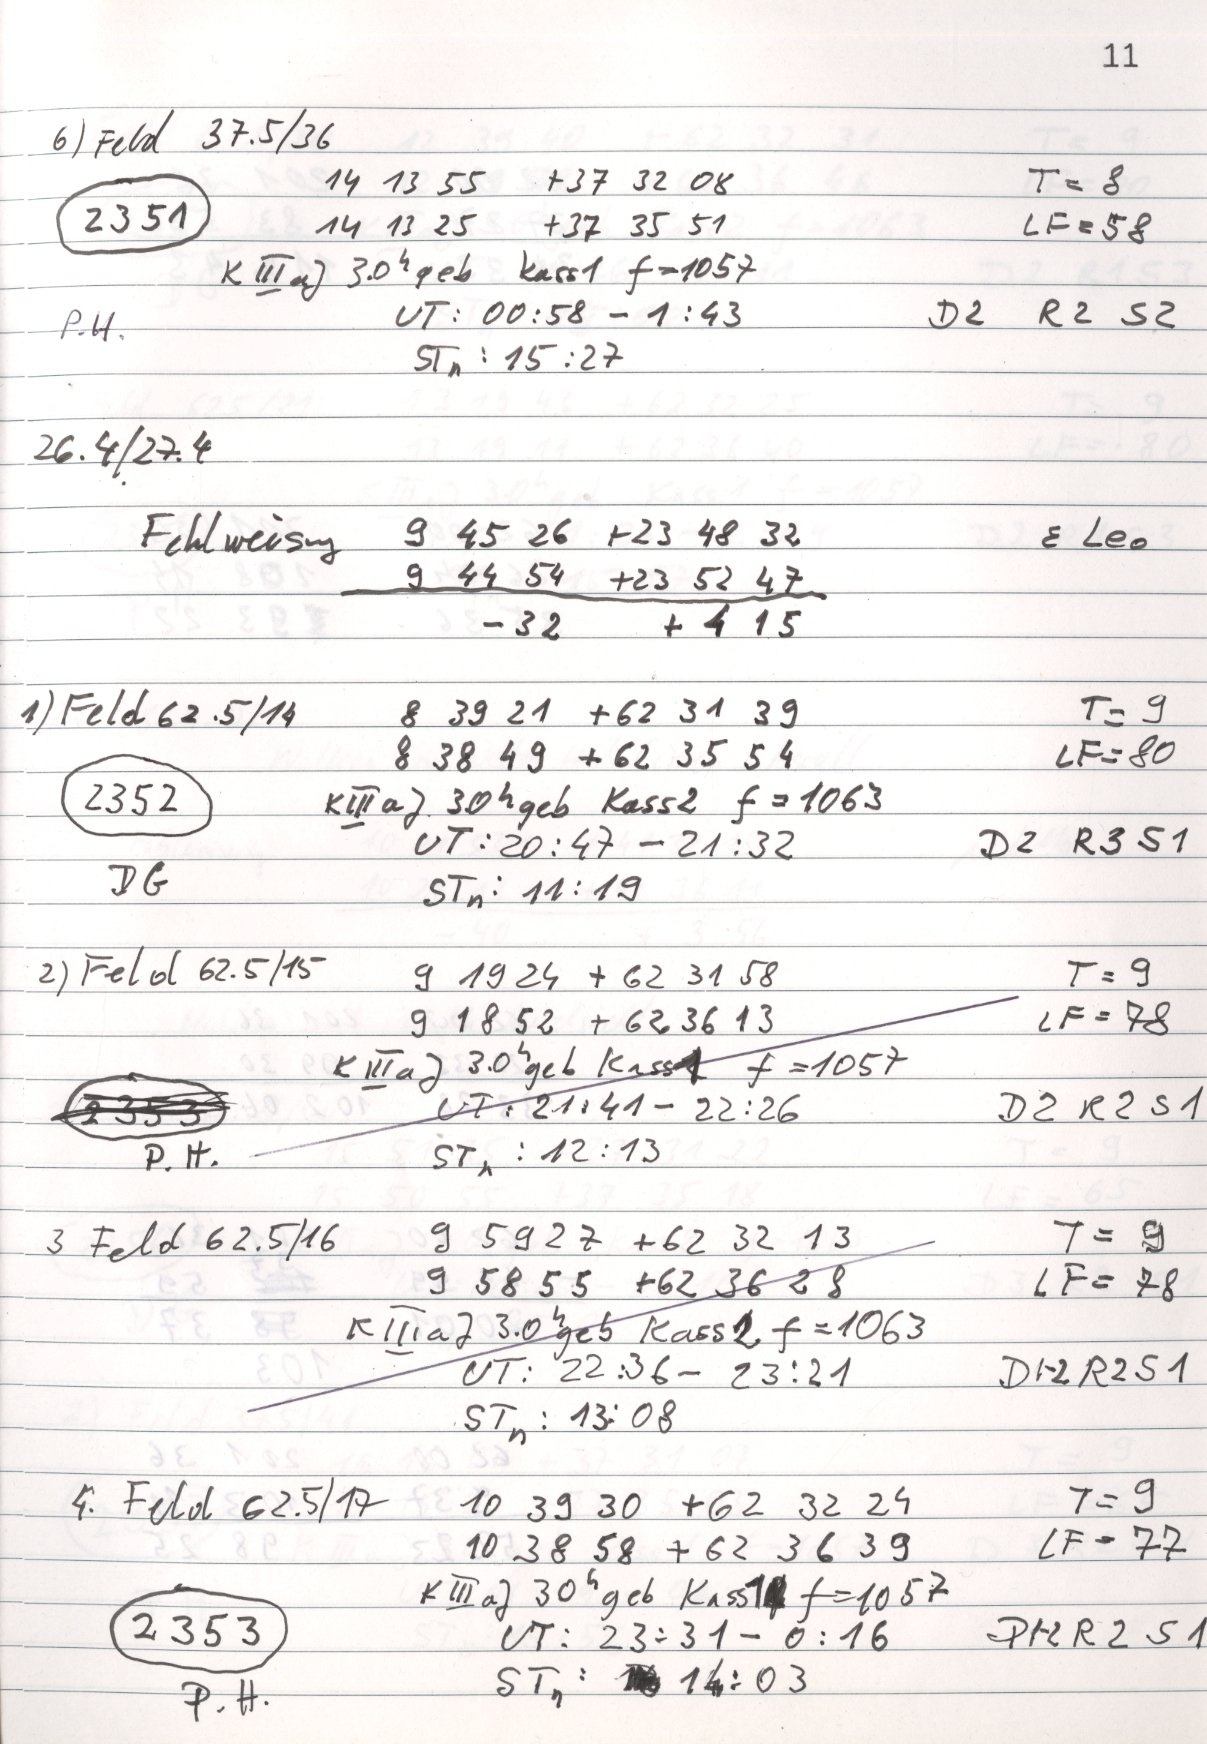 11
6) Feld 37.5/36
14 13 55 +37 32 08 T = 8
2351 14 13 25 +37 35 51 LF = 58
K III aJ 3.0h geb Kass1 f = 1057
P.H. UT: 00:58 - 1:43 D2 R2 S2
STn: 15:27
26.4/27.4
Fehlweisung 9 45 26 +23 48 32 ε Leo
9 44 54 +23 52 47
-32 + 4 15
1) Feld 62.5/14 8 39 21 +62 31 39 T = 9
8 38 49 +62 35 54 LF = 80
2352 K III aJ 30h geb Kass2 f = 1063
UT: 20:47 - 21:32 D2 R3 S1
DG STn: 11:19
2) Feld 62.5/15 9 19 24 +62 31 58 T = 9
9 18 52 +62 36 13 LF = 78
K III aJ 3.0h geb Kass1 f = 1057
2353 UT: 21:41 - 22:26 D2 R2 S1
P.H. STn: 12:13
3 Feld 62.5/16 9 59 27 +62 32 13 T = 9
9 58 55 +62 36 28 LF = 78
K III aJ 3.0h geb Kass2 f = 1063
UT: 22:36 - 23:21 D2 R2 S1
STn: 13:08
4. Feld 62.5/17 10 39 30 +62 32 24 T = 9
10 38 58 +62 36 39 LF = 77
K III aJ 30h geb Kass1 f = 1057
2353 UT: 23:31 - 0:16 D2 R2 S1
P.H. STn: 14:03